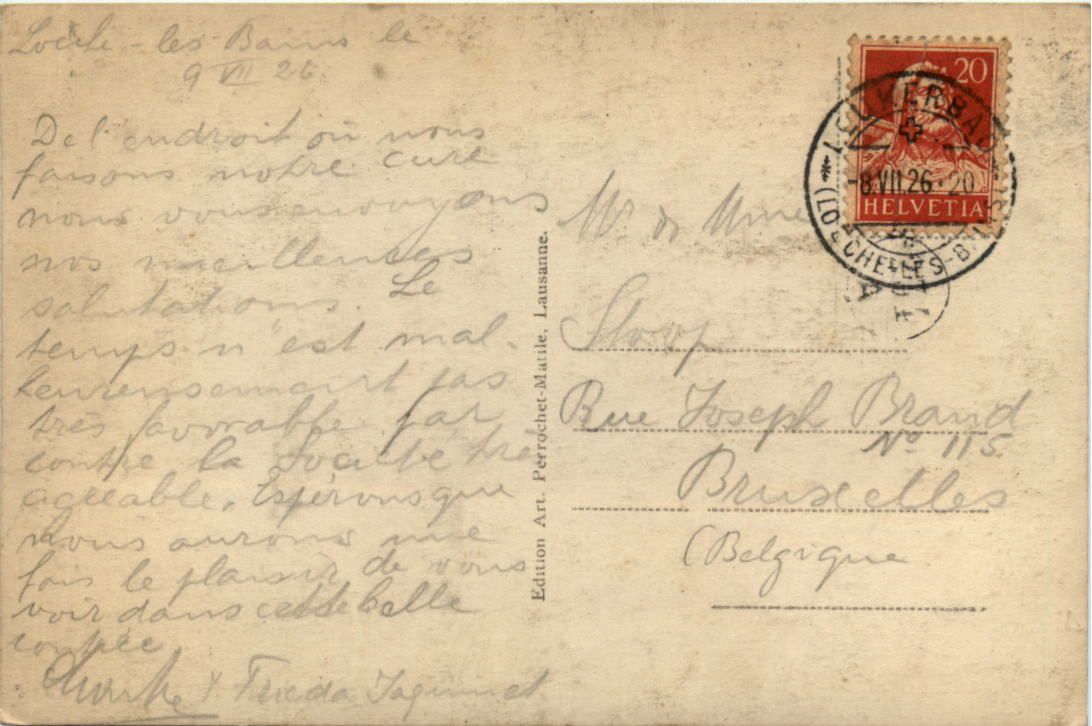 Loèche-les-Bains le
9 VII 26.
De l'endroit où nous
faisons notre cure
nous vous envoyons
nos meilleures
salutations. Le
temps n'est mal-
heureusement pas
très favorable par
contre la Société très
agréable. Espérons que
nous aurons une
fois le plaisir de vous
voir dans cette belle
contrée.
& Frieda Jaquinet
Edition Art. Perrochet-Matile, Lausanne.
20
HELVETIA
LEUKERBAD
8.VII.26-20
(LOÈCHE-LES-BAINS)
Mr. & Mme
Sloop
Rue Joseph Brand
No 115
Bruxelles
(Belgique